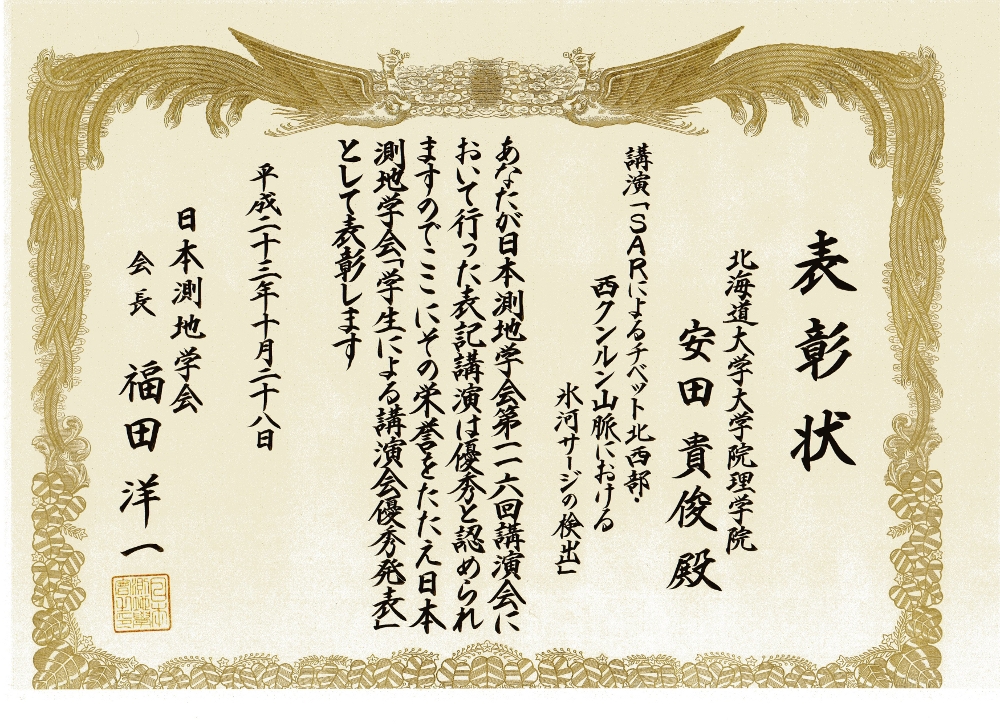 表彰状
北海道大学大学院理学院
安田貴俊殿
講演「SARによるチベット北西部・
西クンルン山脈における
氷河サージの検出」
あなたが日本測地学会第一一六回講演会に
おいて行った表記講演は優秀と認められ
ますのでここにその栄誉をたたえ日本
測地学会「学生による講演会優秀発表」
として表彰します
平成二十三年十月二十八日
日本測地学会
会長 福田洋一